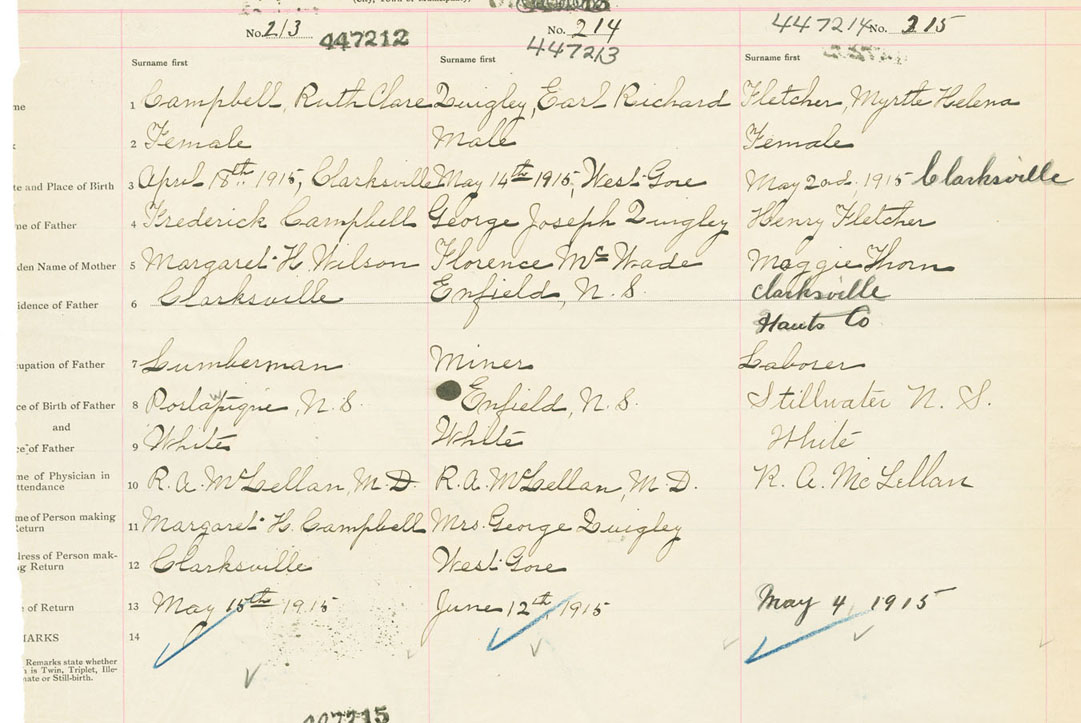 (City, Town or Municipality)
No. 213 447212
No. 214
447213
447214 No. 215
Surname first Surname first Surname first
me 1 Campbell, Ruth Clare Quigley, Earl Richard Fletcher, Myrtle Helena
x 2 Female Male Female
te and Place of Birth 3 April 18th. 1915, Clarksville May 14th 1915, West Gore May 2nd. 1915 Clarksville
me of Father 4 Frederick Campbell George Joseph Quigley Henry Fletcher
den Name of Mother 5 Margaret H. Wilson Florence Mc Wade Maggie Thorn
idence of Father 6 Clarksville Enfield, N.S. Clarksville
Hants Co
cupation of Father 7 Lumberman Miner Laborer
ce of Birth of Father 8 N.S. Enfield, N.S. Stillwater N.S.
and
ce of Father 9 White White White
me of Physician in
ttendance 10 R.A. McLellan, M.D. R.A. McLellan, M.D. R.A. McLellan
me of Person making
Return 11 Margaret H. Campbell Mrs. George Quigley
dress of Person mak-
ng Return 12 Clarksville West Gore
e of Return 13 May 15th 1915 June 12th, 1915 May 4, 1915
MARKS 14
Remarks state whether
n is Twin, Triplet, Ille-
mate or Still-birth.
447215